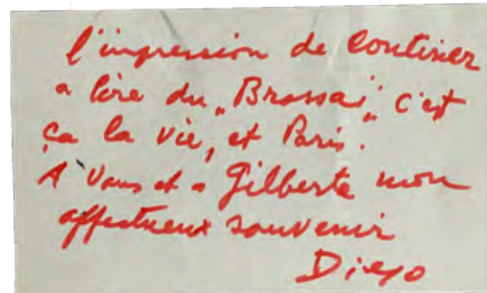 l'impression de continer
a lire du „Brassai" c'est
ça la vie, et Paris.
A Vous et a Gilberte mon
affectueux souvenir
Diego